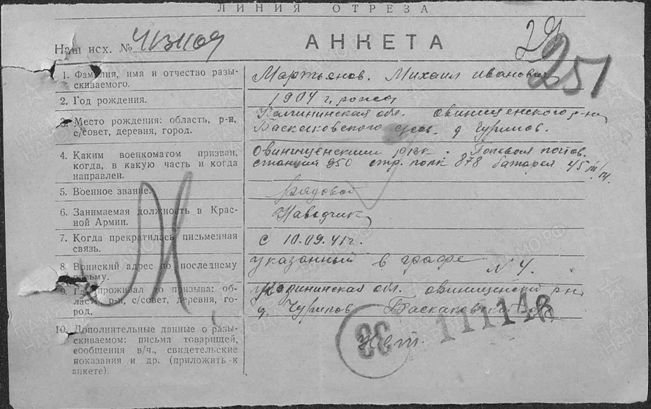 ЛИНИЯ ОТРЕЗА
Наш исх. №
АНКЕТА
29
251
1. Фамилия, имя и отчество разыскиваемого.
Мартьянов. Михаил Иванович
2. Год рождения.
1904 г. рожд
3. Место рождения: область, р-н, с/совет, деревня, город.
Калининская обл. Овинищенского р-на
Баскаковского д. Чурилов.
4. Каким военкоматом призван, когда, в какую часть и когда направлен.
Овинищенским РВК. Полевая почтов.
станция 950 стр. полк 878 батарея 45
5. Военное звание.
Рядовой
6. Занимаемая должность в Красной Армии.
Наводчик
7. Когда прекратилась письменная связь.
с 10.09.41г.
8. Воинский адрес по последнему письму.
указанный в графе № 4.
9. проживал до призыва: область, р-н, с/совет, деревня, город.
Калининская обл. Овинищенский р-н
д. Чурилов Баскаковский
10. Дополнительные данные о разыскиваемом: письма товарищей, сообщения в/ч., свидетельские показания и др. (приложить к анкете).
Нет.
33
111148